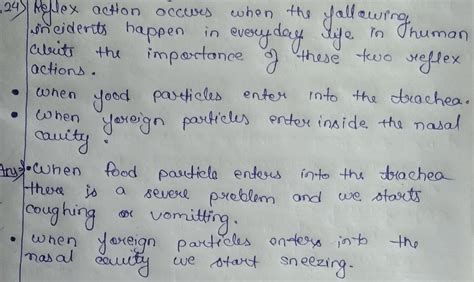 24) Reflex action occurs when the following
incidents happen in everyday life in human
write the importance of these two reflex
actions.
• when food particles enter into the trachea.
• when foreign particles enter inside the nasal
cavity.
Ans → • When food particle enters into the trachea
there is a severe problem and we starts
coughing or vomitting.
• when foreign particles enters into the
nasal cavity we start sneezing.